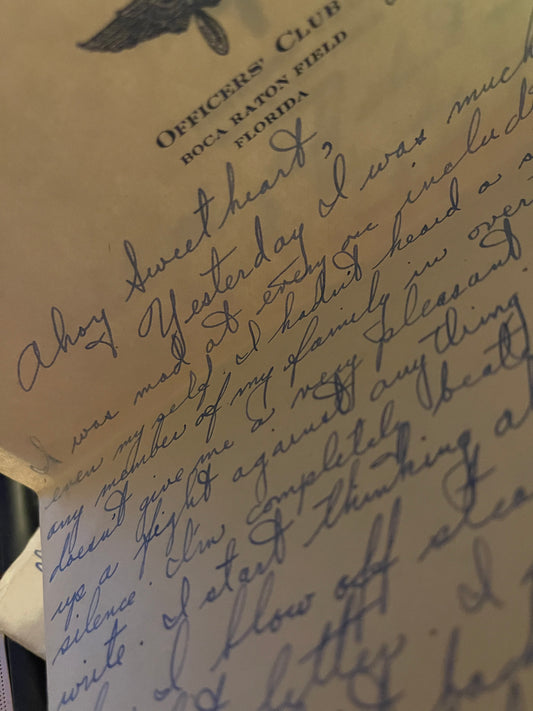 OFFICERS' CLUB
BOCA RATON FIELD
FLORIDA
Ahoy Sweetheart,
Yesterday I was much
I was mad at everyone includ
even myself. I hadn't heard a
any member of my family in over
doesn't give me a very pleasant
up a fight against anything
silence. I'm completely beat
write. I start thinking a
I blow off stea
letter. I